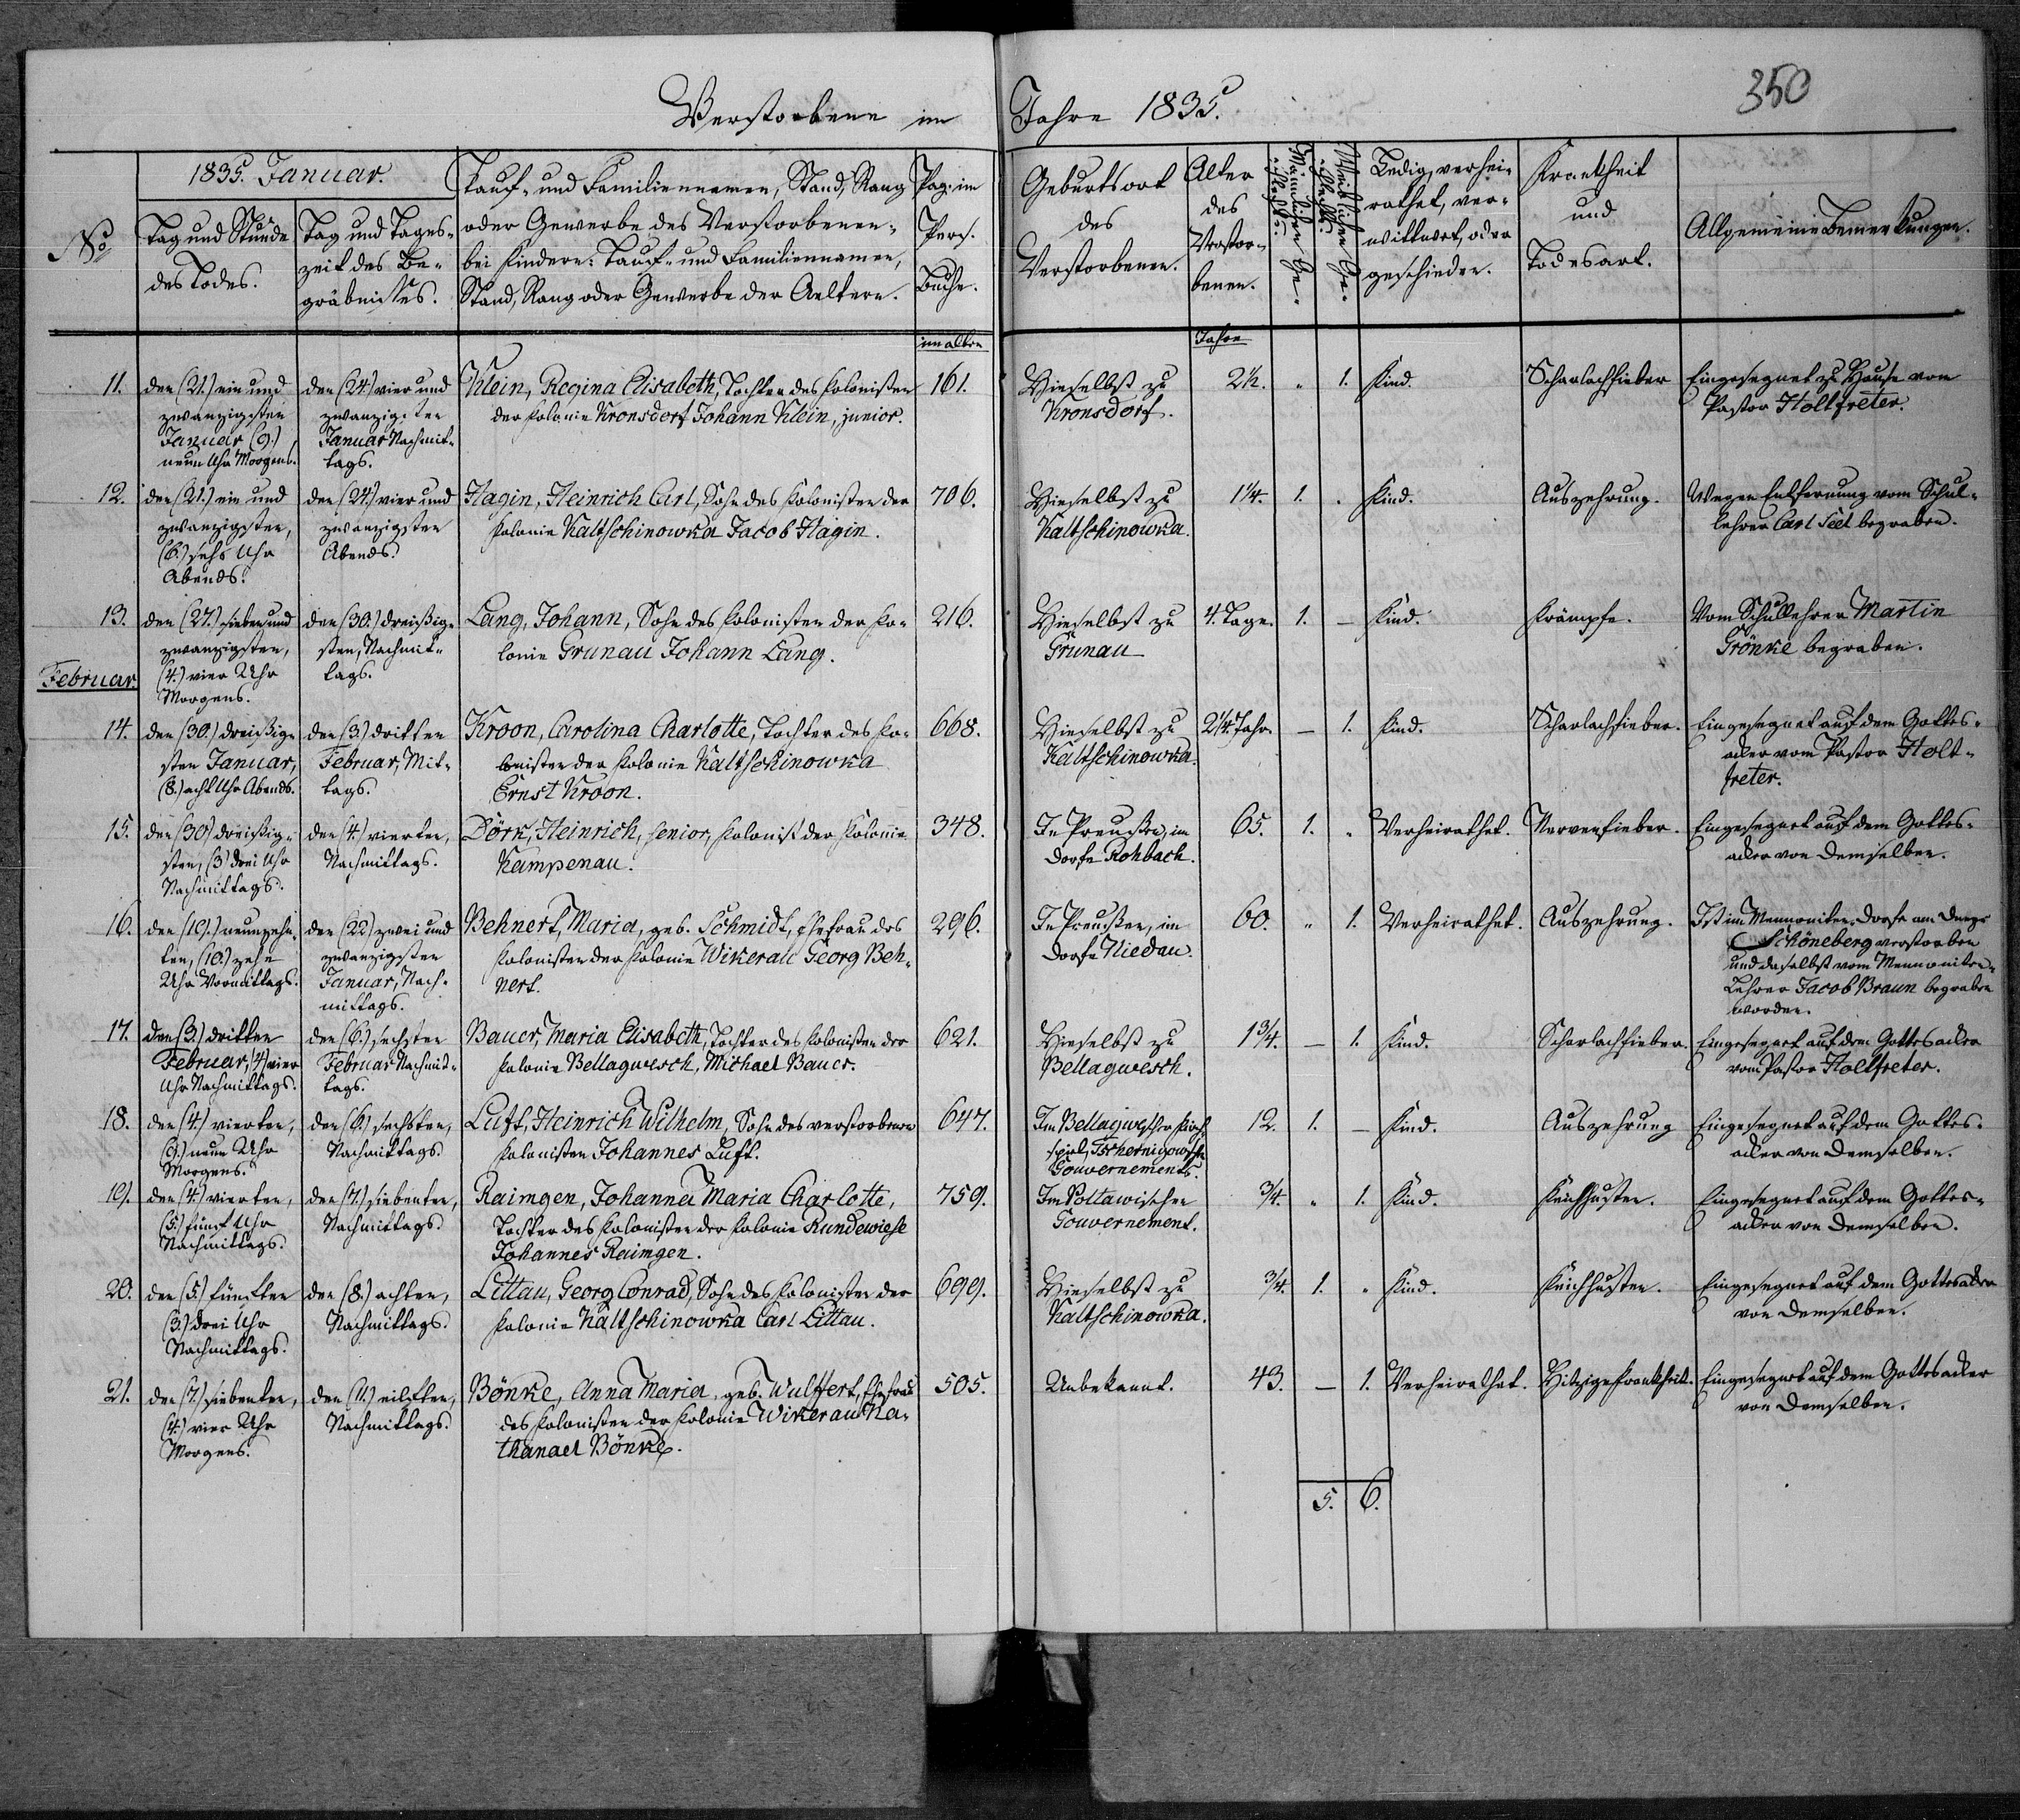 350
Verstorbene im Jahre 1835.
1835. Januar.
No
Tag und Stunde
des Todes.
Tag und Tages-
zeit des Be-
gräbnisses.
Tauf- und Familiennamen, Stand, Rang
oder Gewerbe des Verstorbenen;
bei Kindern: Tauf- und Familiennamen,
Stand, Rang oder Gewerbe der Aeltern.
Pag. im
Pers.
Buche.
Geburtsort
des
Verstorbenen.
Alter
des
Verstor-
benen.
Männlichen Ge-
schlechts.
Weiblichen Ge-
schlechts.
Ledig, verhei-
rathet, ver-
wittwet, oder
geschieden.
Krankheit
und
Todesart.
Allgemeine Bemerkungen.
im alten
Jahre
11.
den (21.) ein und
zwanzigsten
Januar (9.)
neun Uhr Morgens.
den (24.) vier und
zwanzigsten
Januar Nachmit-
tags.
Klein, Regina Elisabeth, Tochter des Kolonisten
der Kolonie Kronsdorf Johann Klein, junior.
161.
Hieselbst zu
Kronsdorf.
2½. " 1. Kind.
Scharlachfieber
Eingesegnet zu Hause vom
Pastor Holtfreter.
12.
den (21.) ein und
zwanzigsten,
(6.) sechs Uhr
Abends.
den (24.) vier und
zwanzigsten
Abends.
Hagin, Heinrich Carl, Sohn des Kolonisten der
Kolonie Kaltschinowka Jacob Hagin.
706.
Hieselbst zu
Kaltschinowka.
1¼. 1. " Kind.
Auszehrung.
Wegen Entfernung vom Schul-
lehrer Carl Seel begraben.
13.
den (27.) sieben und
zwanzigsten,
(4.) vier Uhr
Morgens.
den (30.) dreißig-
sten, Nachmit-
tags.
Lang, Johann, Sohn des Kolonisten der Ko-
lonie Grunau Johann Lang.
216.
Hieselbst zu
Grunau
4. Tage. 1. — Kind.
Krämpfe.
Vom Schullehrer Martin
Grönke begraben.
Februar
14.
den (30.) dreißig-
sten Januar,
(8.) acht Uhr Abends.
den (3.) dritten
Februar, Mit-
tags.
Kroon, Carolina Charlotte, Tochter des Ko-
lonisten der Kolonie Kaltschinowka
Ernst Kroon.
668.
Hieselbst zu
Kaltschinowka.
2¼. Jahr. — 1. Kind.
Scharlachfieber.
Eingesegnet auf dem Gottes-
acker vom Pastor Holt-
freter.
15.
den (30.) dreißig-
sten, (3.) drei Uhr
Nachmittags.
den (4.) vierten,
Nachmittags.
Dörk, Heinrich, senior, Kolonist der Kolonie
Kampenau.
348.
In Preußen, im
Dorfe Rohbach.
65. 1. " Verheirathet.
Nervenfieber.
Eingesegnet auf dem Gottes-
acker von Demselben.
16.
den (19.) neunzehn-
ten, (10.) zehn
Uhr Vormittags.
den (22.) zwei und
zwanzigsten
Januar, Nach-
mittags.
Behnert, Maria, geb. Schmidt, Ehefrau des
Kolonisten der Kolonie Wikerau Georg Beh-
nert.
296.
In Preußen, im
Dorfe Niedau.
60. " 1. Verheirathet.
Auszehrung.
Ist im Mennoniten-Dorfe am Dnepr
Schöneberg verstorben
und daselbst vom Mennoniten-
Lehrer Jacob Braun begraben
worden.
17.
den (3.) dritten
Februar, (4.) vier
Uhr Nachmittags.
den (6.) sechsten
Februar Nachmit-
tags.
Bauer, Maria Elisabeth, Tochter des Kolonisten der
Kolonie Bellagwesch, Michael Bauer.
621.
Hieselbst zu
Bellagwesch.
1¾. — 1. Kind.
Scharlachfieber.
Eingesegnet auf dem Gottesacker
vom Pastor Holtfreter.
18.
den (4.) vierten,
(9.) neun Uhr
Morgens.
den (6.) sechsten,
Nachmittags.
Luft, Heinrich Wilhelm, Sohn des verstorbenen
Kolonisten Johannes Luft.
647.
Im Bellagwescher Kirch-
spiel, Tschernigowschen
Gouvernements.
12. 1. — Kind.
Auszehrung
Eingesegnet auf dem Gottes-
acker von Demselben.
19.
den (4.) vierten,
(5.) fünf Uhr
Nachmittags.
den (7.) siebenten,
Nachmittags.
Raimgen, Johanna Maria Charlotte,
Tochter des Kolonisten der Kolonie Rundewiese
Johannes Raimgen.
759.
Im Poltawischen
Gouvernement.
¾. " 1. Kind.
Keichhusten.
Eingesegnet auf dem Gottes-
acker von Demselben.
20.
den (5.) fünften
(3.) drei Uhr
Nachmittags.
den (8.) achten,
Nachmittags.
Littau, Georg Conrad, Sohn des Kolonisten der
Kolonie Kaltschinowka Carl Littau.
699.
Hieselbst zu
Kaltschinowka.
¾. 1. " Kind.
Keichhusten.
Eingesegnet auf dem Gottesacker
von Demselben.
21.
den (7.) siebenten,
(4.) vier Uhr
Morgens.
den (11.) eilften,
Nachmittags.
Bönke, Anna Maria, geb. Wulffert, Ehefrau
des Kolonisten der Kolonie Wikerau Na-
thanael Bönke.
505.
Unbekannt.
43. — 1. Verheirathet.
Hitzige Krankheit.
Eingesegnet auf dem Gottesacker
von Demselben.
5. 6.